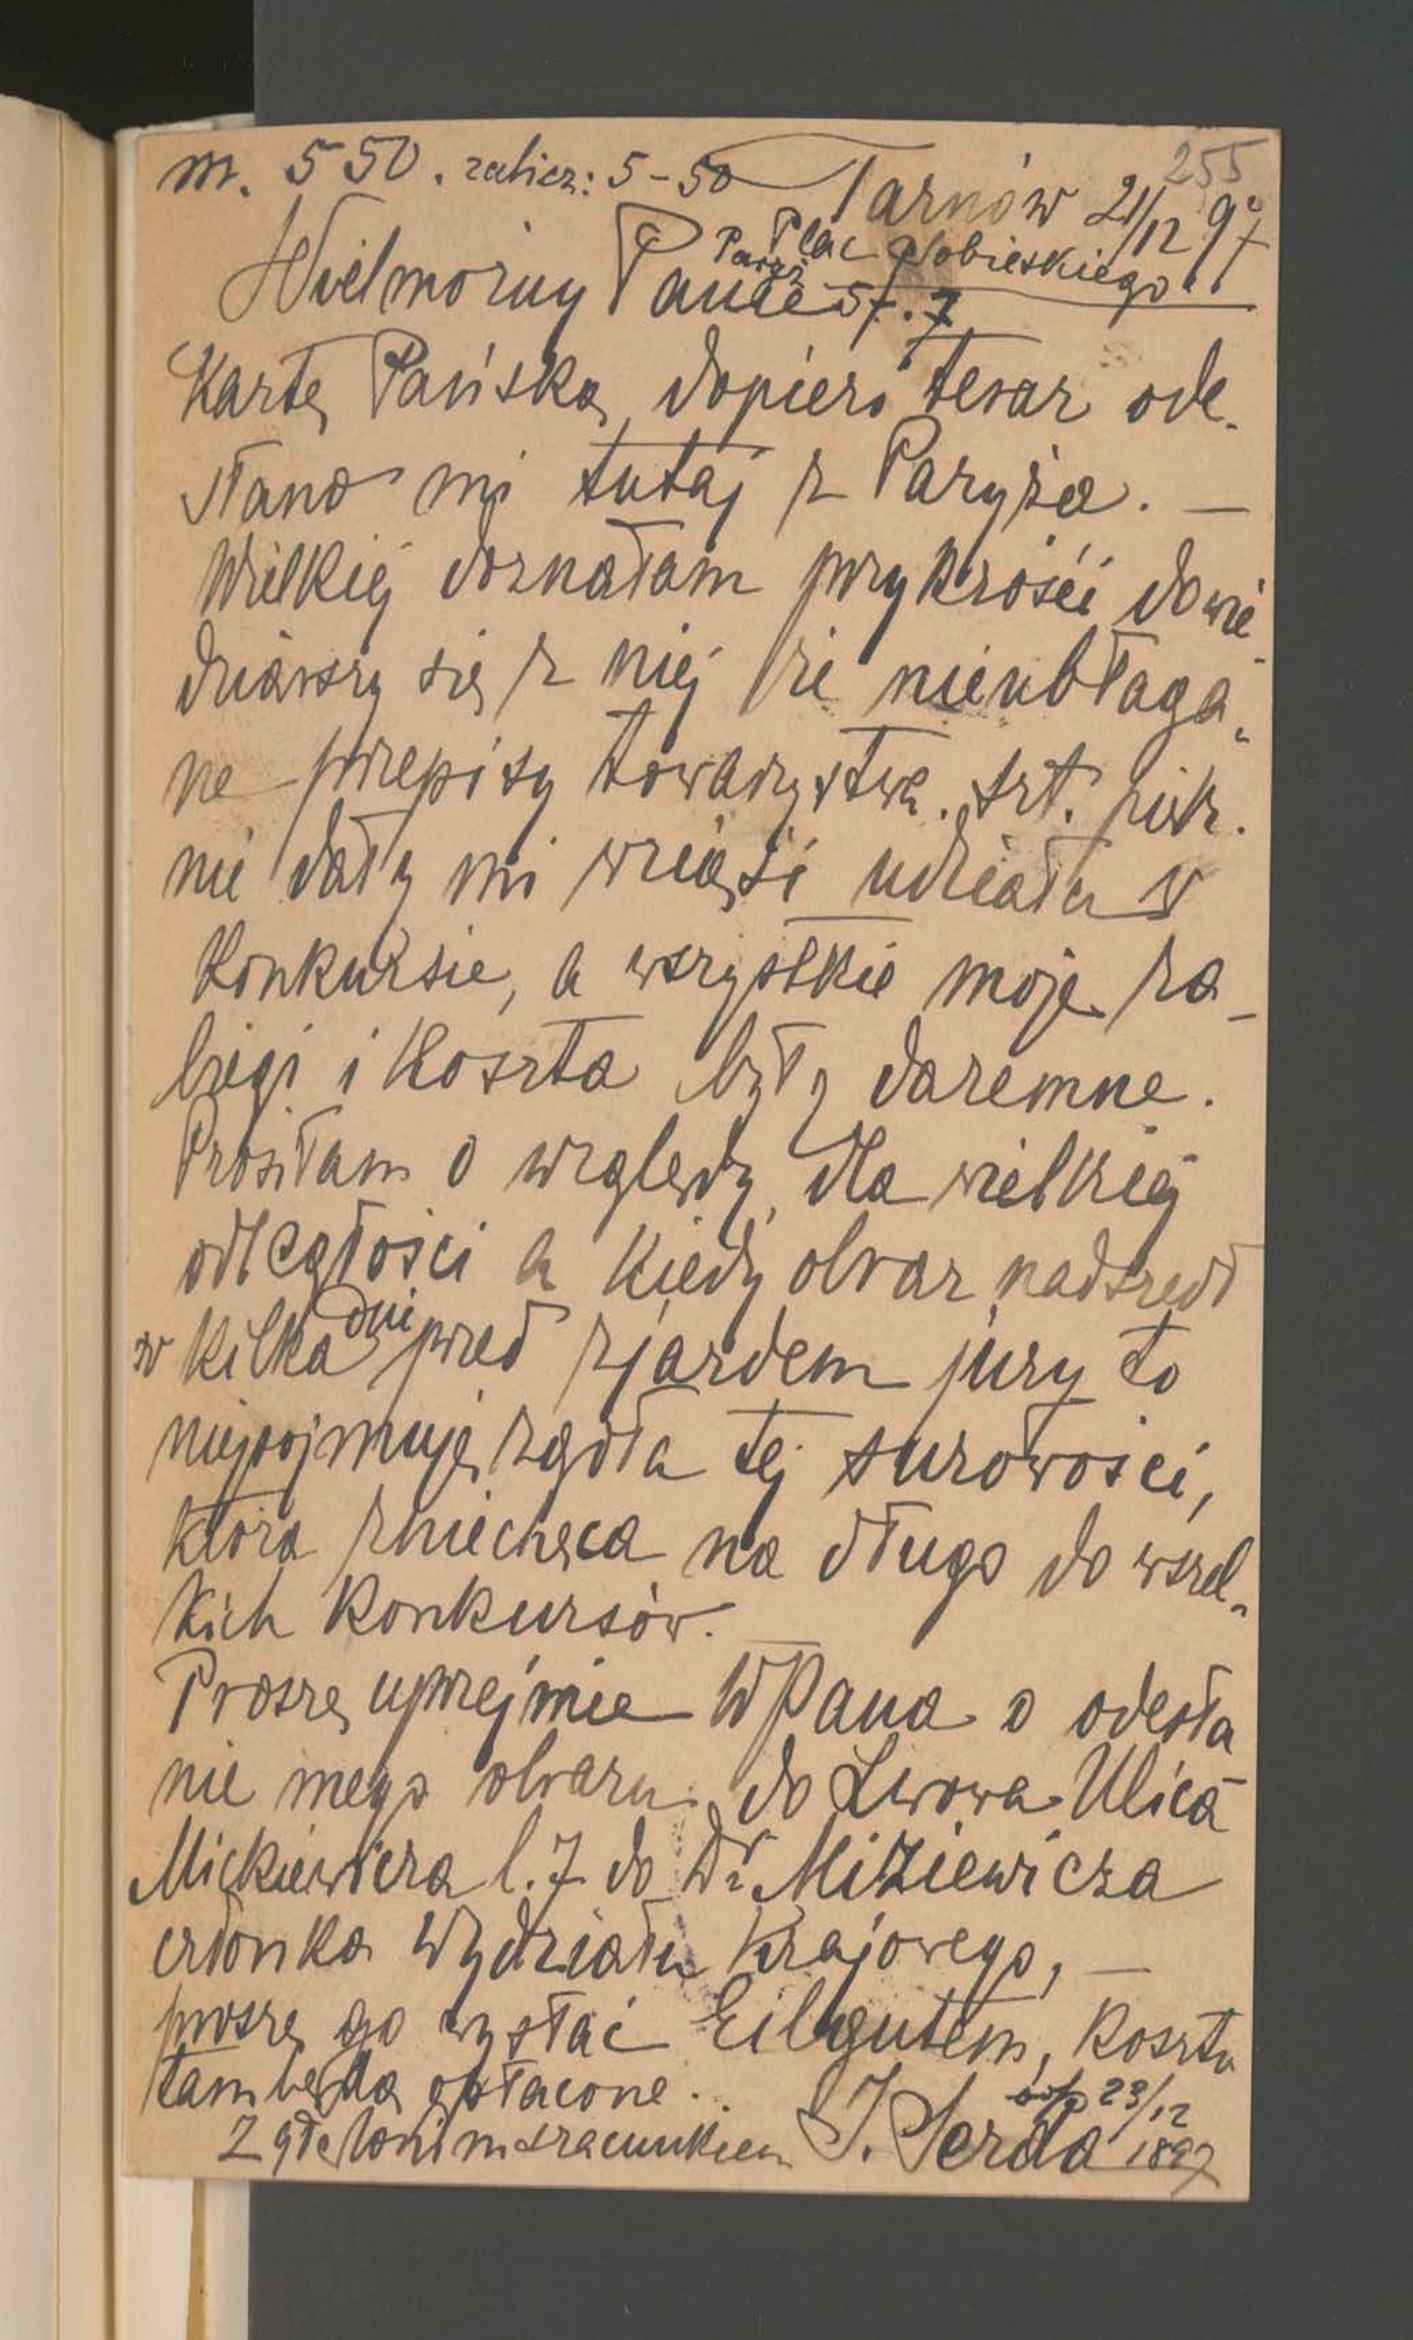 255
m. 550. zalicz: 5-50 Tarnów 21/12 97
Plac Sobieskiego
Wielmożny Panie
Kartę Pańską dopiero teraz ode-
słano mi tutaj z Paryża. —
Wielkiej doznałam przykrości dowie-
dziawszy się z niej że nieubłaga-
ne przepisy towarzystwa. szt. pięk.
nie dały mi wziąść udziału w
Konkursie, a wszystkie moje za-
biegi i Koszta były daremne.
Prosiłam o względy, dla wielkiej
odległości a kiedy obraz nadszedł
w kilka dni przed zjazdem jury to
niepojmuję zgoła tej surowości,
która zniechęca na długo do wszel-
kich Konkursów. —
Proszę uprzejmie WPana o odesła
nie mego obrazu do Lwowa Ulica
Mickiewicza l. 7 do Dr
członka Wydziału Krajowego, —
proszę go wysłać Eilgutem, Koszta
tam będą opłacone.
23/12
Z głębokim szacunkiem J. Serda 1897